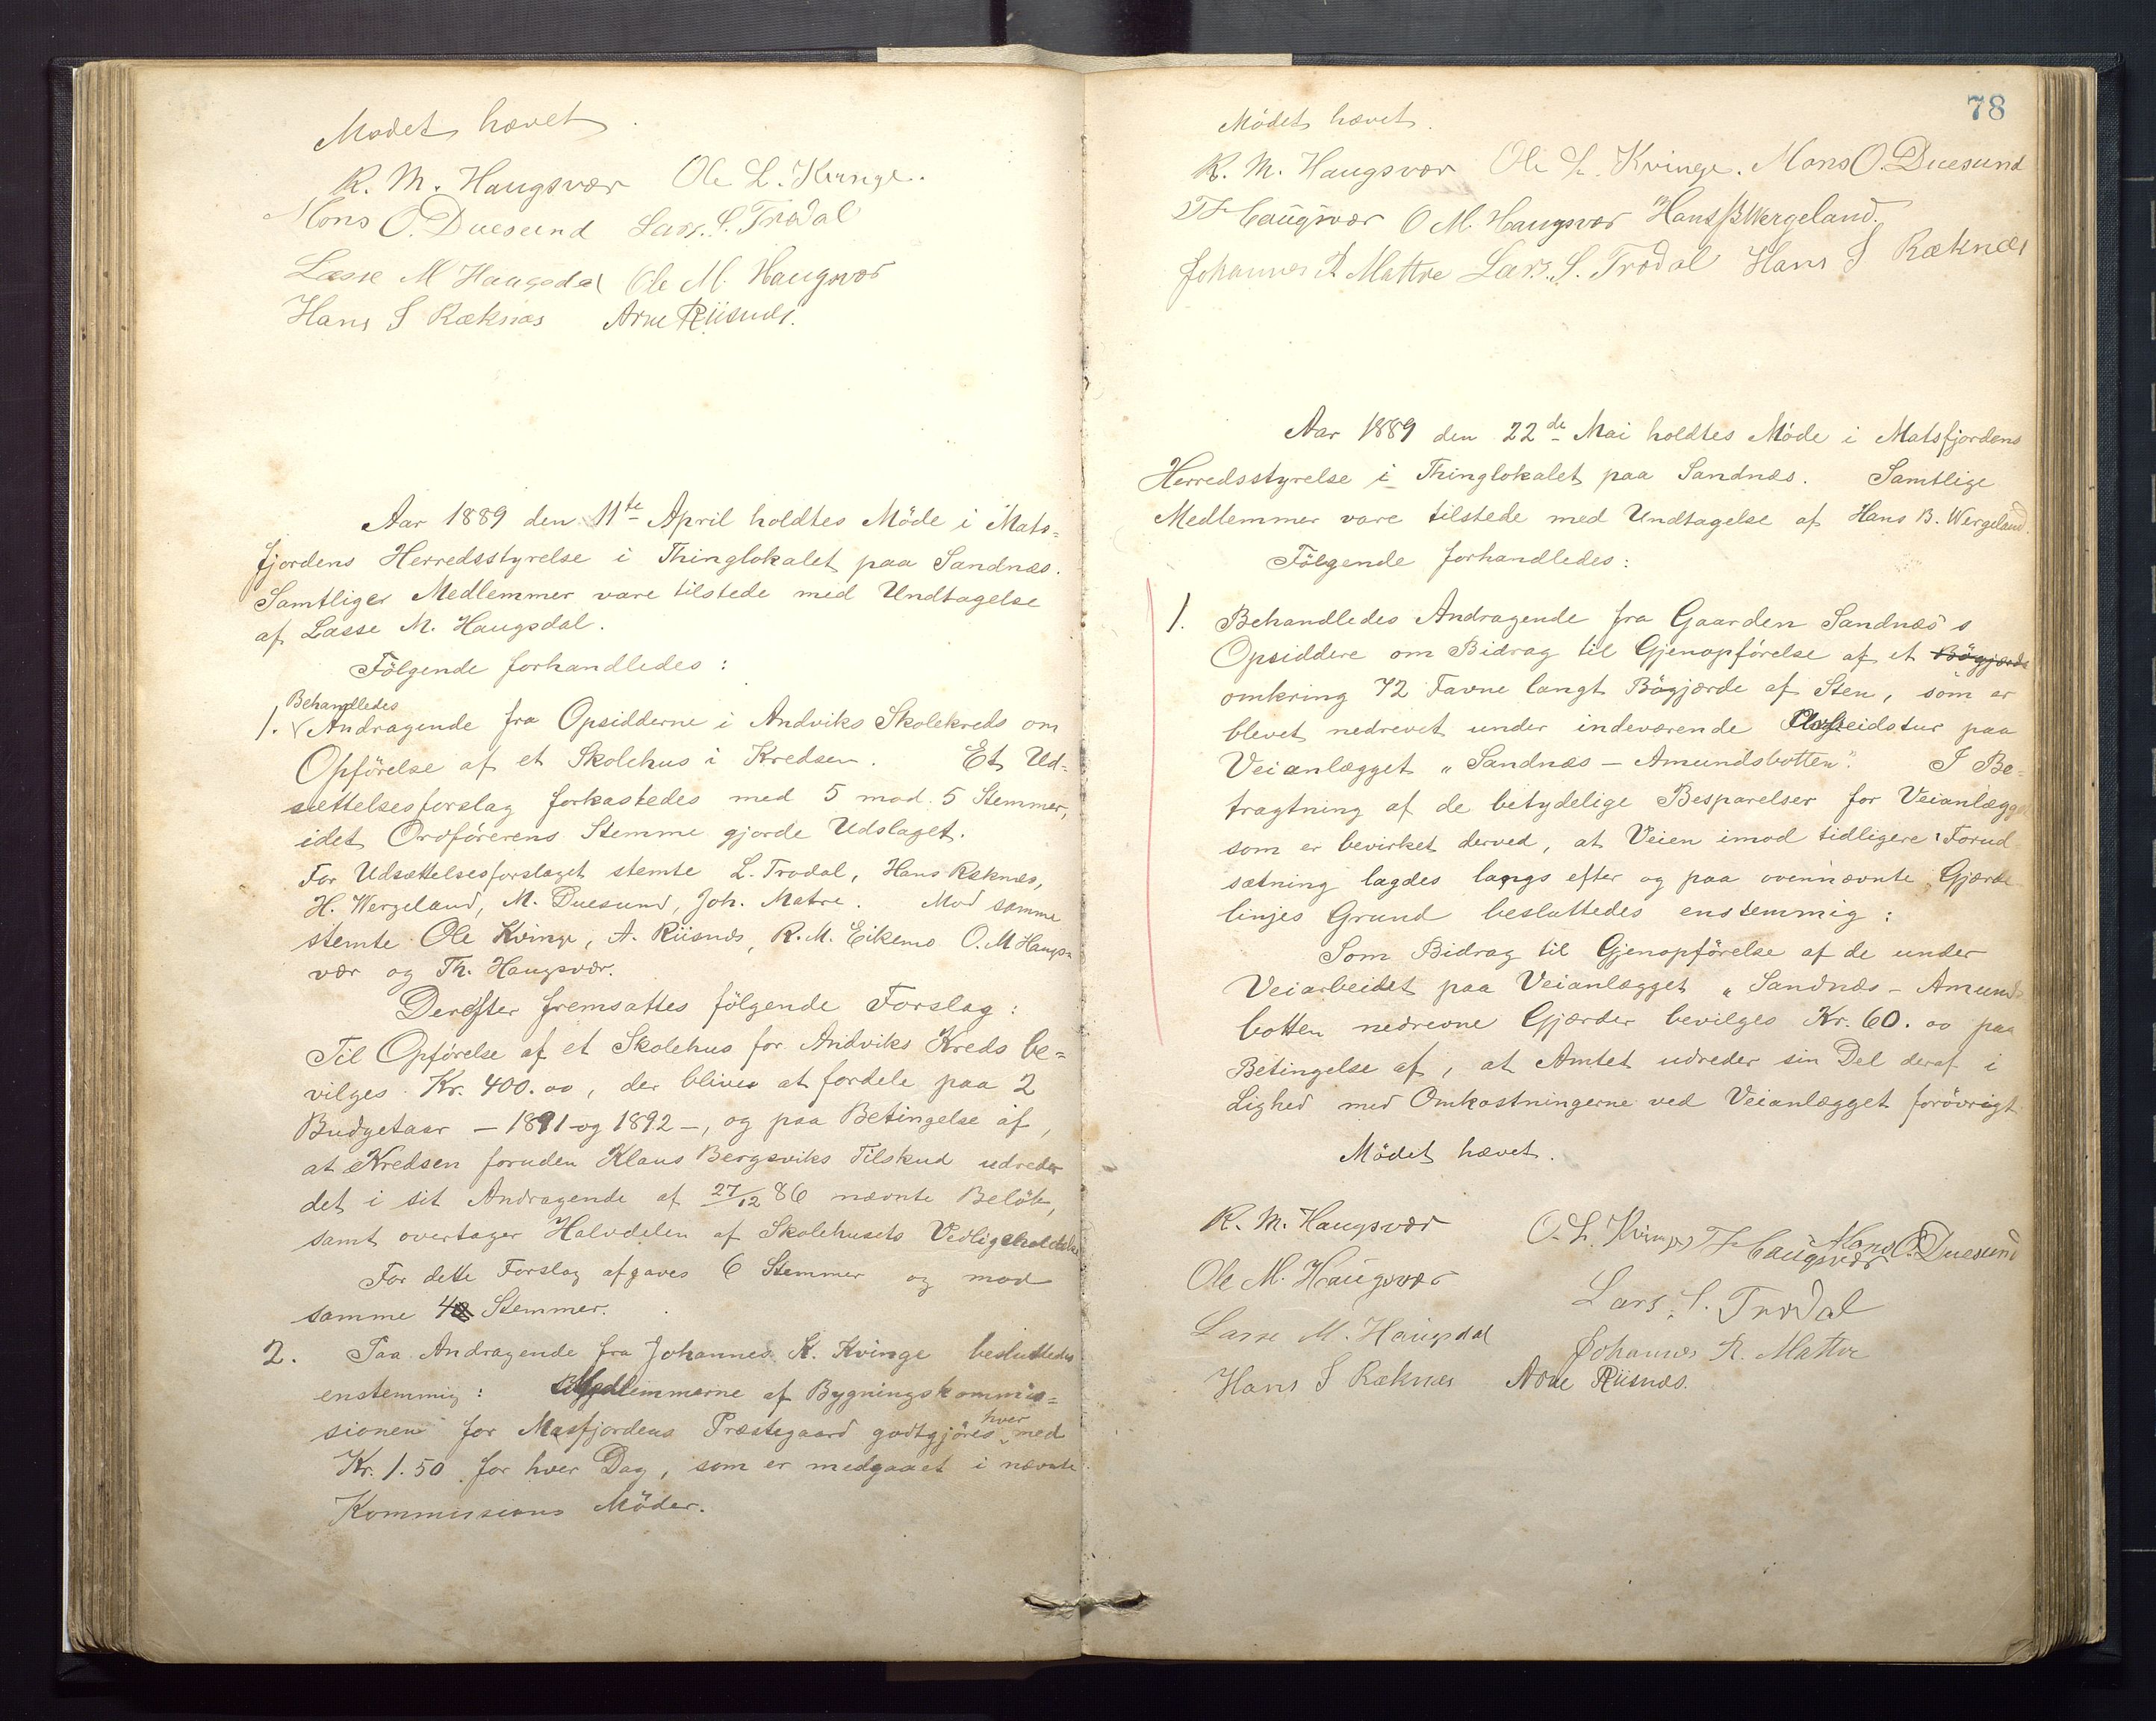 Mødet hævet.
R. M. Haugsvær Ole L. Kvinge.
Mons O. Duesund Lars. S. Trodal
Lasse M Haugsdal Ole M. Haugsvær
Hans S Ræknæs Arne Riisnæs.
Aar 1889 den 11te April holdtes Möde i Mats=
fjordens Herredsstyrelse i Thinglokalet paa Sandnæs.
Samtliger Medlemmer vare tilstede med Undtagelse
af Lasse M. Haugsdal.
Fölgende forhandledes:
Behandledes
1. Andragende fra Opsidderne i Andviks Skolekreds om
Opförelse af et Skolehus i Kredsen. Et Ud=
sættelsesforslag forkastedes med 5 mod 5 Stemmer,
idet Ordförerens Stemme gjorde Udslaget.
For Udsættelsesforslaget stemte L. Trodal, Hans Ræknæs,
H. Wergeland, M. Duesund, Joh. Matre. Mod samme
stemte Ole Kvinge, A. Riisnæs, R. M. Eikemo O. M Haugs=
vær og Th. Haugsvær.
Derefter fremsattes fölgende Forslag:
Til Opförelse af et Skolehus for Andviks Kreds be=
vilges Kr. 400.00, der bliver at fordele paa 2
Budgetaar — 1891 og 1892 —, og paa Betingelse af,
at Kredsen foruden Klaus Bergsviks Tilskud udreder
det i sit Andragende af 27/12 86 nævnte Belöb,
samt overtager Halvdelen af Skolehusets Vedligeholdelse
For dette Forslag afgaves 6 Stemmer og mod
samme 4 Stemmer.
2. Paa Andragende fra Johannes K. Kvinge besluttedes
enstemmig: Medlemmerne af Bygningskommis=
sionen for Masfjordens Præstegaard godtgjöres hver med
Kr. 1.50 for hver Dag, som er medgaaet i nævnte
Kommissions Möder.
78
Mödet hævet.
R. M. Haugsvær Ole L. Kvinge. Mons O. Duesund
T Haugsvær O M. Haugsvær Hans B Wergeland.
Johannes A Mattre Lars. S. Trodal Hans S Ræknæs
Aar 1889 den 22de Mai holdtes Möde i Matsfjordens
Herredsstyrelse i Thinglokalet paa Sandnæs. Samtlige
Medlemmer vare tilstede med Undtagelse af Hans B. Wergeland.
Fölgende forhandledes:
1. Behandledes Andragende fra Gaarden Sandnæs's
Opsiddere om Bidrag til Gjenopförelse af et Bögjærde
omkring 72 Favne langt Bögjærde af Sten, som er
blevet nedrevet under indeværende Arbeidstur paa
Veianlægget „Sandnæs — Amundsbotten". I Be=
tragtning af de betydelige Besparelser for Veianlægget
som er bevirket derved, at Veien imod tidligere Forud
sætning lagdes langs efter og paa ovennævnte Gjærde
linjes Grund besluttedes enstemmig:
Som Bidrag til Gjenopförelse af de under
Veiarbeidet paa Veianlægget „Sandnæs - Amunds
botten nedrevne Gjærder bevilges Kr. 60.00 paa
Betingelse af, at Amtet udreder sin Del deraf i
Lighed med Omkostningerne ved Veianlægget forövrigt
Mödet hævet.
R. M. Haugsvær O. L. Kvinge T Haugsvær Mons O. Duesund
Ole M. Haugsvær Lars. S. Trodal
Lasse M. Haugsdal Johannes A. Mattre
Hans S Ræknes Arne Riisnæs.